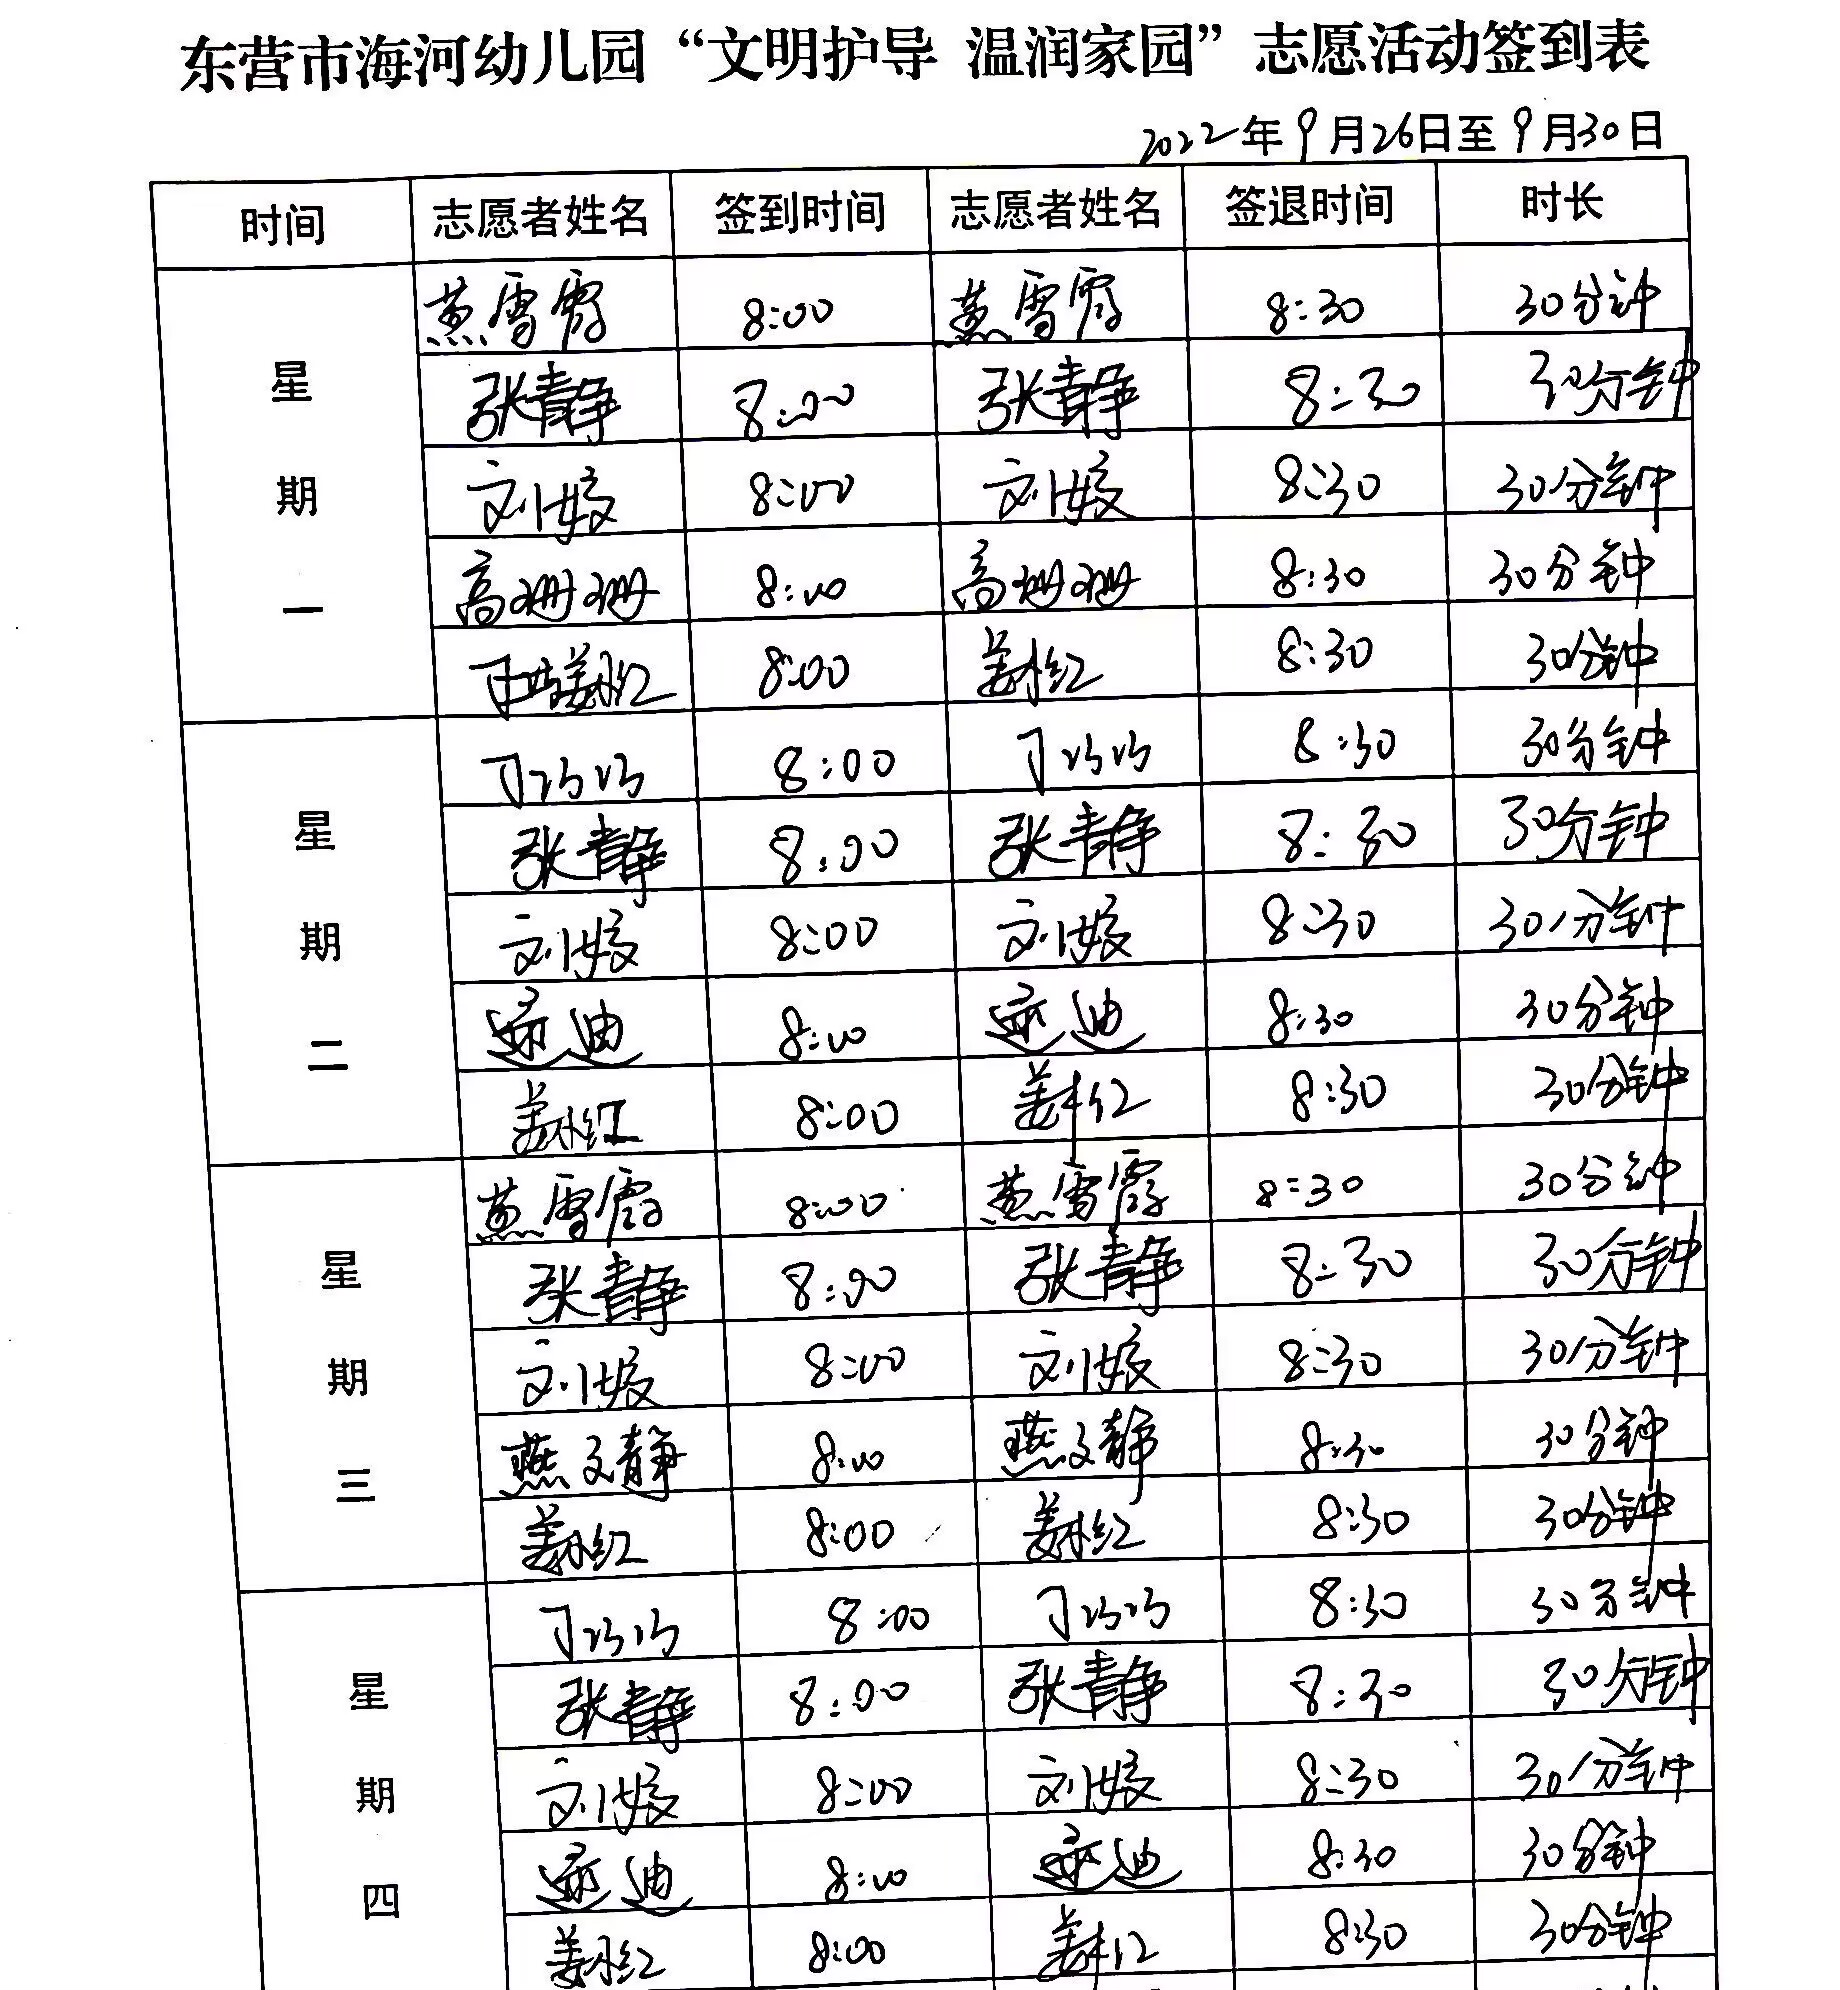 东营市海河幼儿园“文明护导 温润家园”志愿活动签到表
2022年9月26日至9月30日
时间 志愿者姓名 签到时间 志愿者姓名 签退时间 时长
星期一
燕雪霞 8:00 燕雪霞 8:30 30分钟
张静静 8:00 张静静 8:30 30分钟
刘媛 8:00 刘媛 8:30 30分钟
高珊珊 8:00 高珊珊 8:30 30分钟
姜林红 8:00 姜林红 8:30 30分钟
星期二
丁巧巧 8:00 丁巧巧 8:30 30分钟
张静静 8:00 张静静 8:30 30分钟
刘媛 8:00 刘媛 8:30 30分钟
迪 8:00 迪 8:30 30分钟
姜林红 8:00 姜林红 8:30 30分钟
星期三
燕雪霞 8:00 燕雪霞 8:30 30分钟
张静静 8:00 张静静 8:30 30分钟
刘媛 8:00 刘媛 8:30 30分钟
燕文静 8:00 燕文静 8:30 30分钟
姜林红 8:00 姜林红 8:30 30分钟
星期四
丁巧巧 8:00 丁巧巧 8:30 30分钟
张静静 8:00 张静静 8:30 30分钟
刘媛 8:00 刘媛 8:30 30分钟
迪 8:00 迪 8:30 30分钟
姜林红 8:00 姜林红 8:30 30分钟